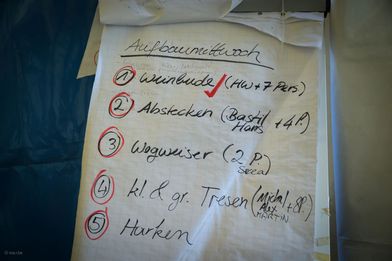 Aufbaumittwoch
1 Weinbude (HW + 7 Pers)
2 Abstecken (Bastil Hans + 4 P.)
3 Wegweiser (2 P. Seea)
4 kl. & gr. Tresen (Michl Alex MARTIN + 8P.)
5 Harken